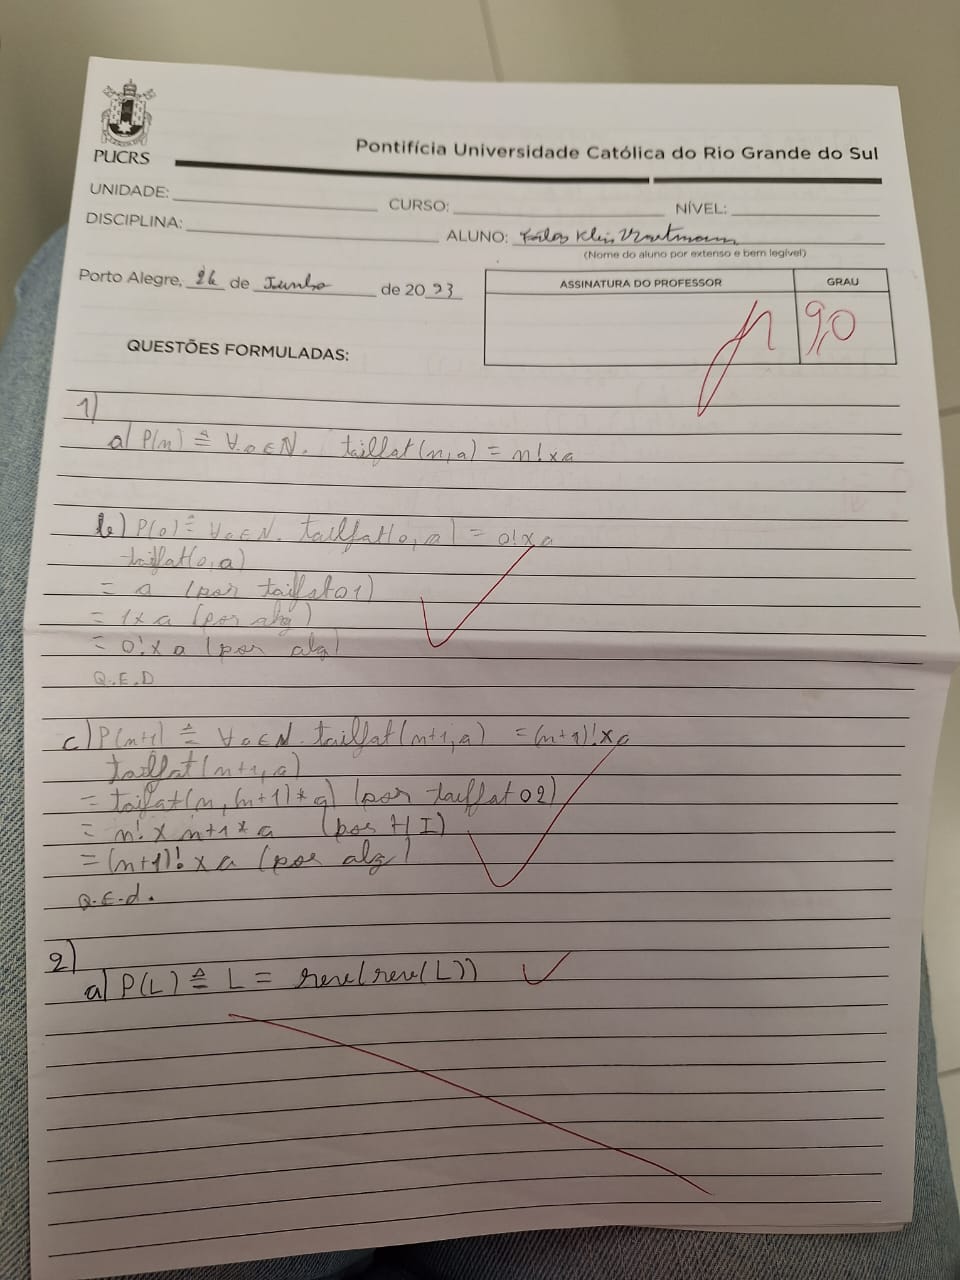 PUCRS
Pontifícia Universidade Católica do Rio Grande do Sul
UNIDADE:
CURSO:
NÍVEL:
DISCIPLINA:
ALUNO:
(Nome do aluno por extenso e bem legível)
Porto Alegre, 26 de Junho de 2023
ASSINATURA DO PROFESSOR
GRAU
9,0
QUESTÕES FORMULADAS:
1)
a) P(n) ≙ ∀a∈N. tailfat(n,a) = n! x a
b) P(0) ≙ ∀a∈N. tailfat(0,a) = 0! x a
tailfat(0,a)
= a (por tailfat01)
= 1 x a (por alg)
= 0! x a (por alg)
Q.E.D
c) P(n+1) ≙ ∀a∈N. tailfat(n+1,a) = (n+1)! x a
tailfat(n+1,a)
= taifat(n, (n+1) * a) (por tailfat02)
= n! x n+1 * a (por HI)
= (n+1)! x a (por alg)
Q.E.d.
2)
a) P(L) ≙ L = reve(reve(L))